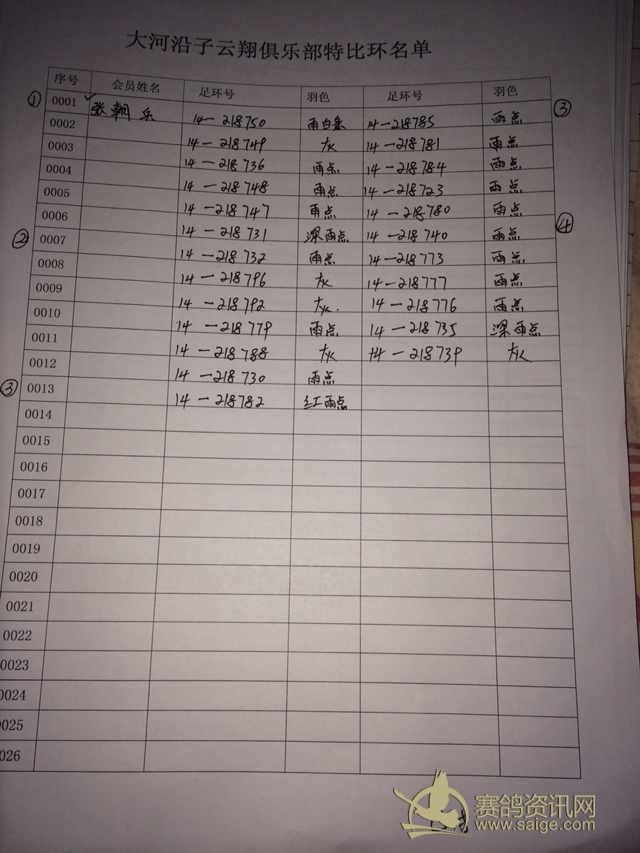 大河沿子云翔俱乐部特比环名单
序号 会员姓名 足环号 羽色 足环号 羽色
① 0001 张朝乐 14-218750 雨白条 14-218785 雨点 ③
0002 14-218749 灰 14-218781 雨点
0003 14-218736 雨点 14-218784 雨点
0004 14-218748 雨点 14-218723 雨点
0005 14-218747 雨点 14-218780 雨点
0006 14-218731 深雨点 14-218740 雨点 ④
② 0007 14-218732 雨点 14-218773 雨点
0008 14-218796 灰 14-218777 雨点
0009 14-218792 灰. 14-218776 雨点
0010 14-218779 雨点 14-218735 深雨点
0011 14-218788 灰 14-218739 灰
0012 14-218730 雨点
③ 0013 14-218782 红雨点
0014
0015
0016
0017
0018
0019
0020
0021
0022
0023
0024
0025
026
赛鸽资讯网
www.saige.com